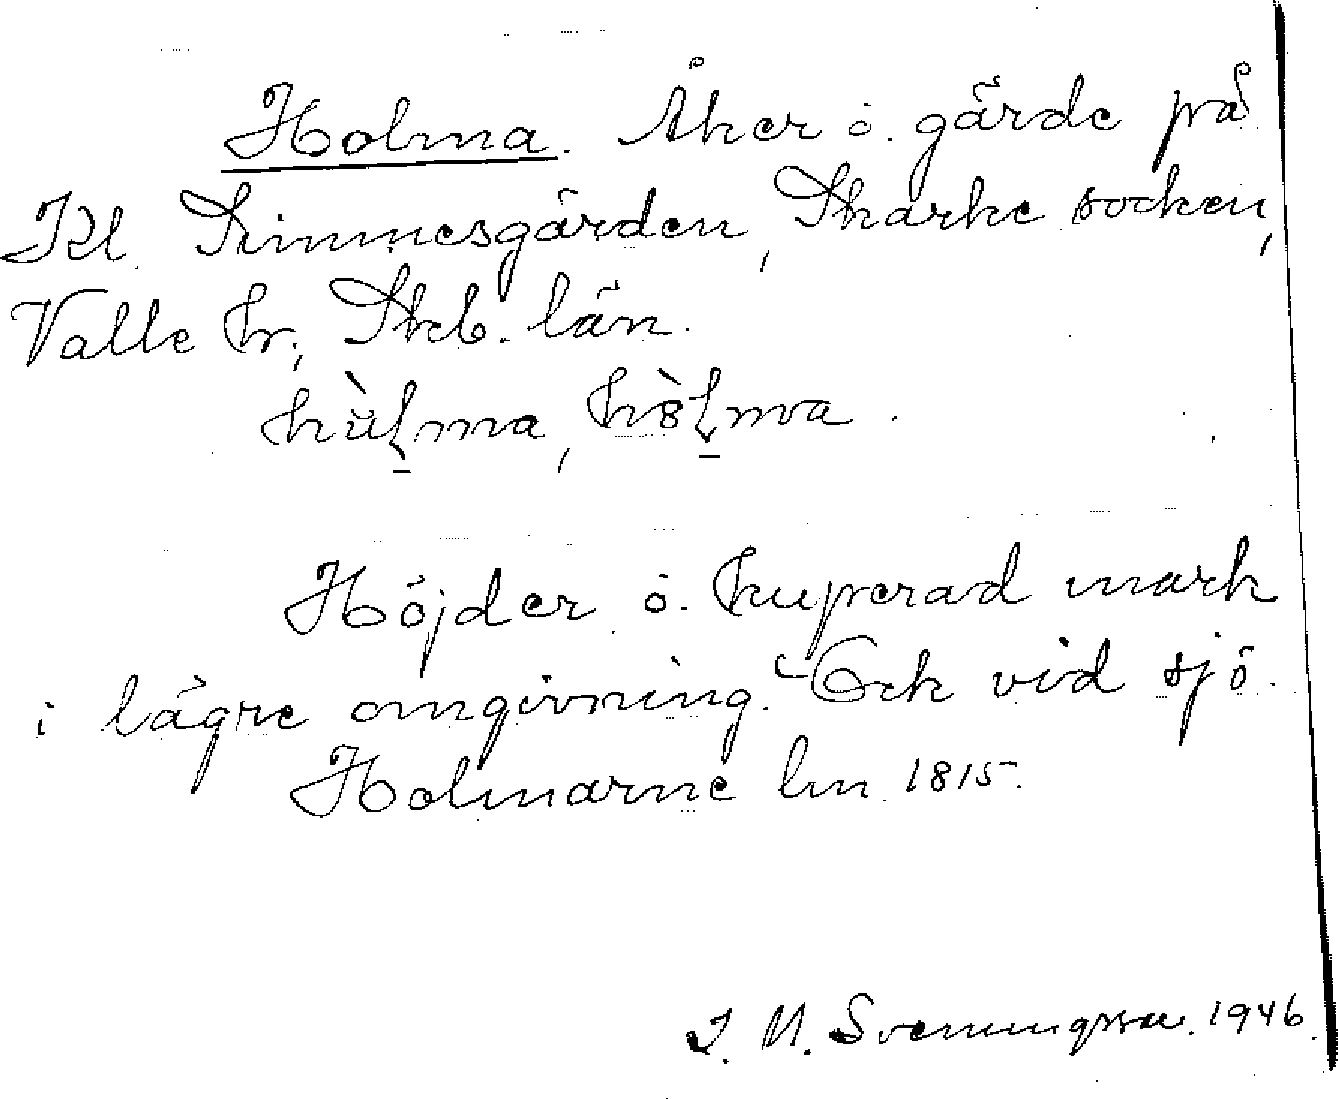 Holma. Åker o. gärde på
Kl. Simmesgården, Skarke socken,
Valle hr, Skb. län.
hùl̠ma, hòl̠mva.
Höjder o. kuperad mark
i lägre omgivning. Ock vid sjö.
Holmarne lm 1815.
I. M. Svenungsson. 1946.